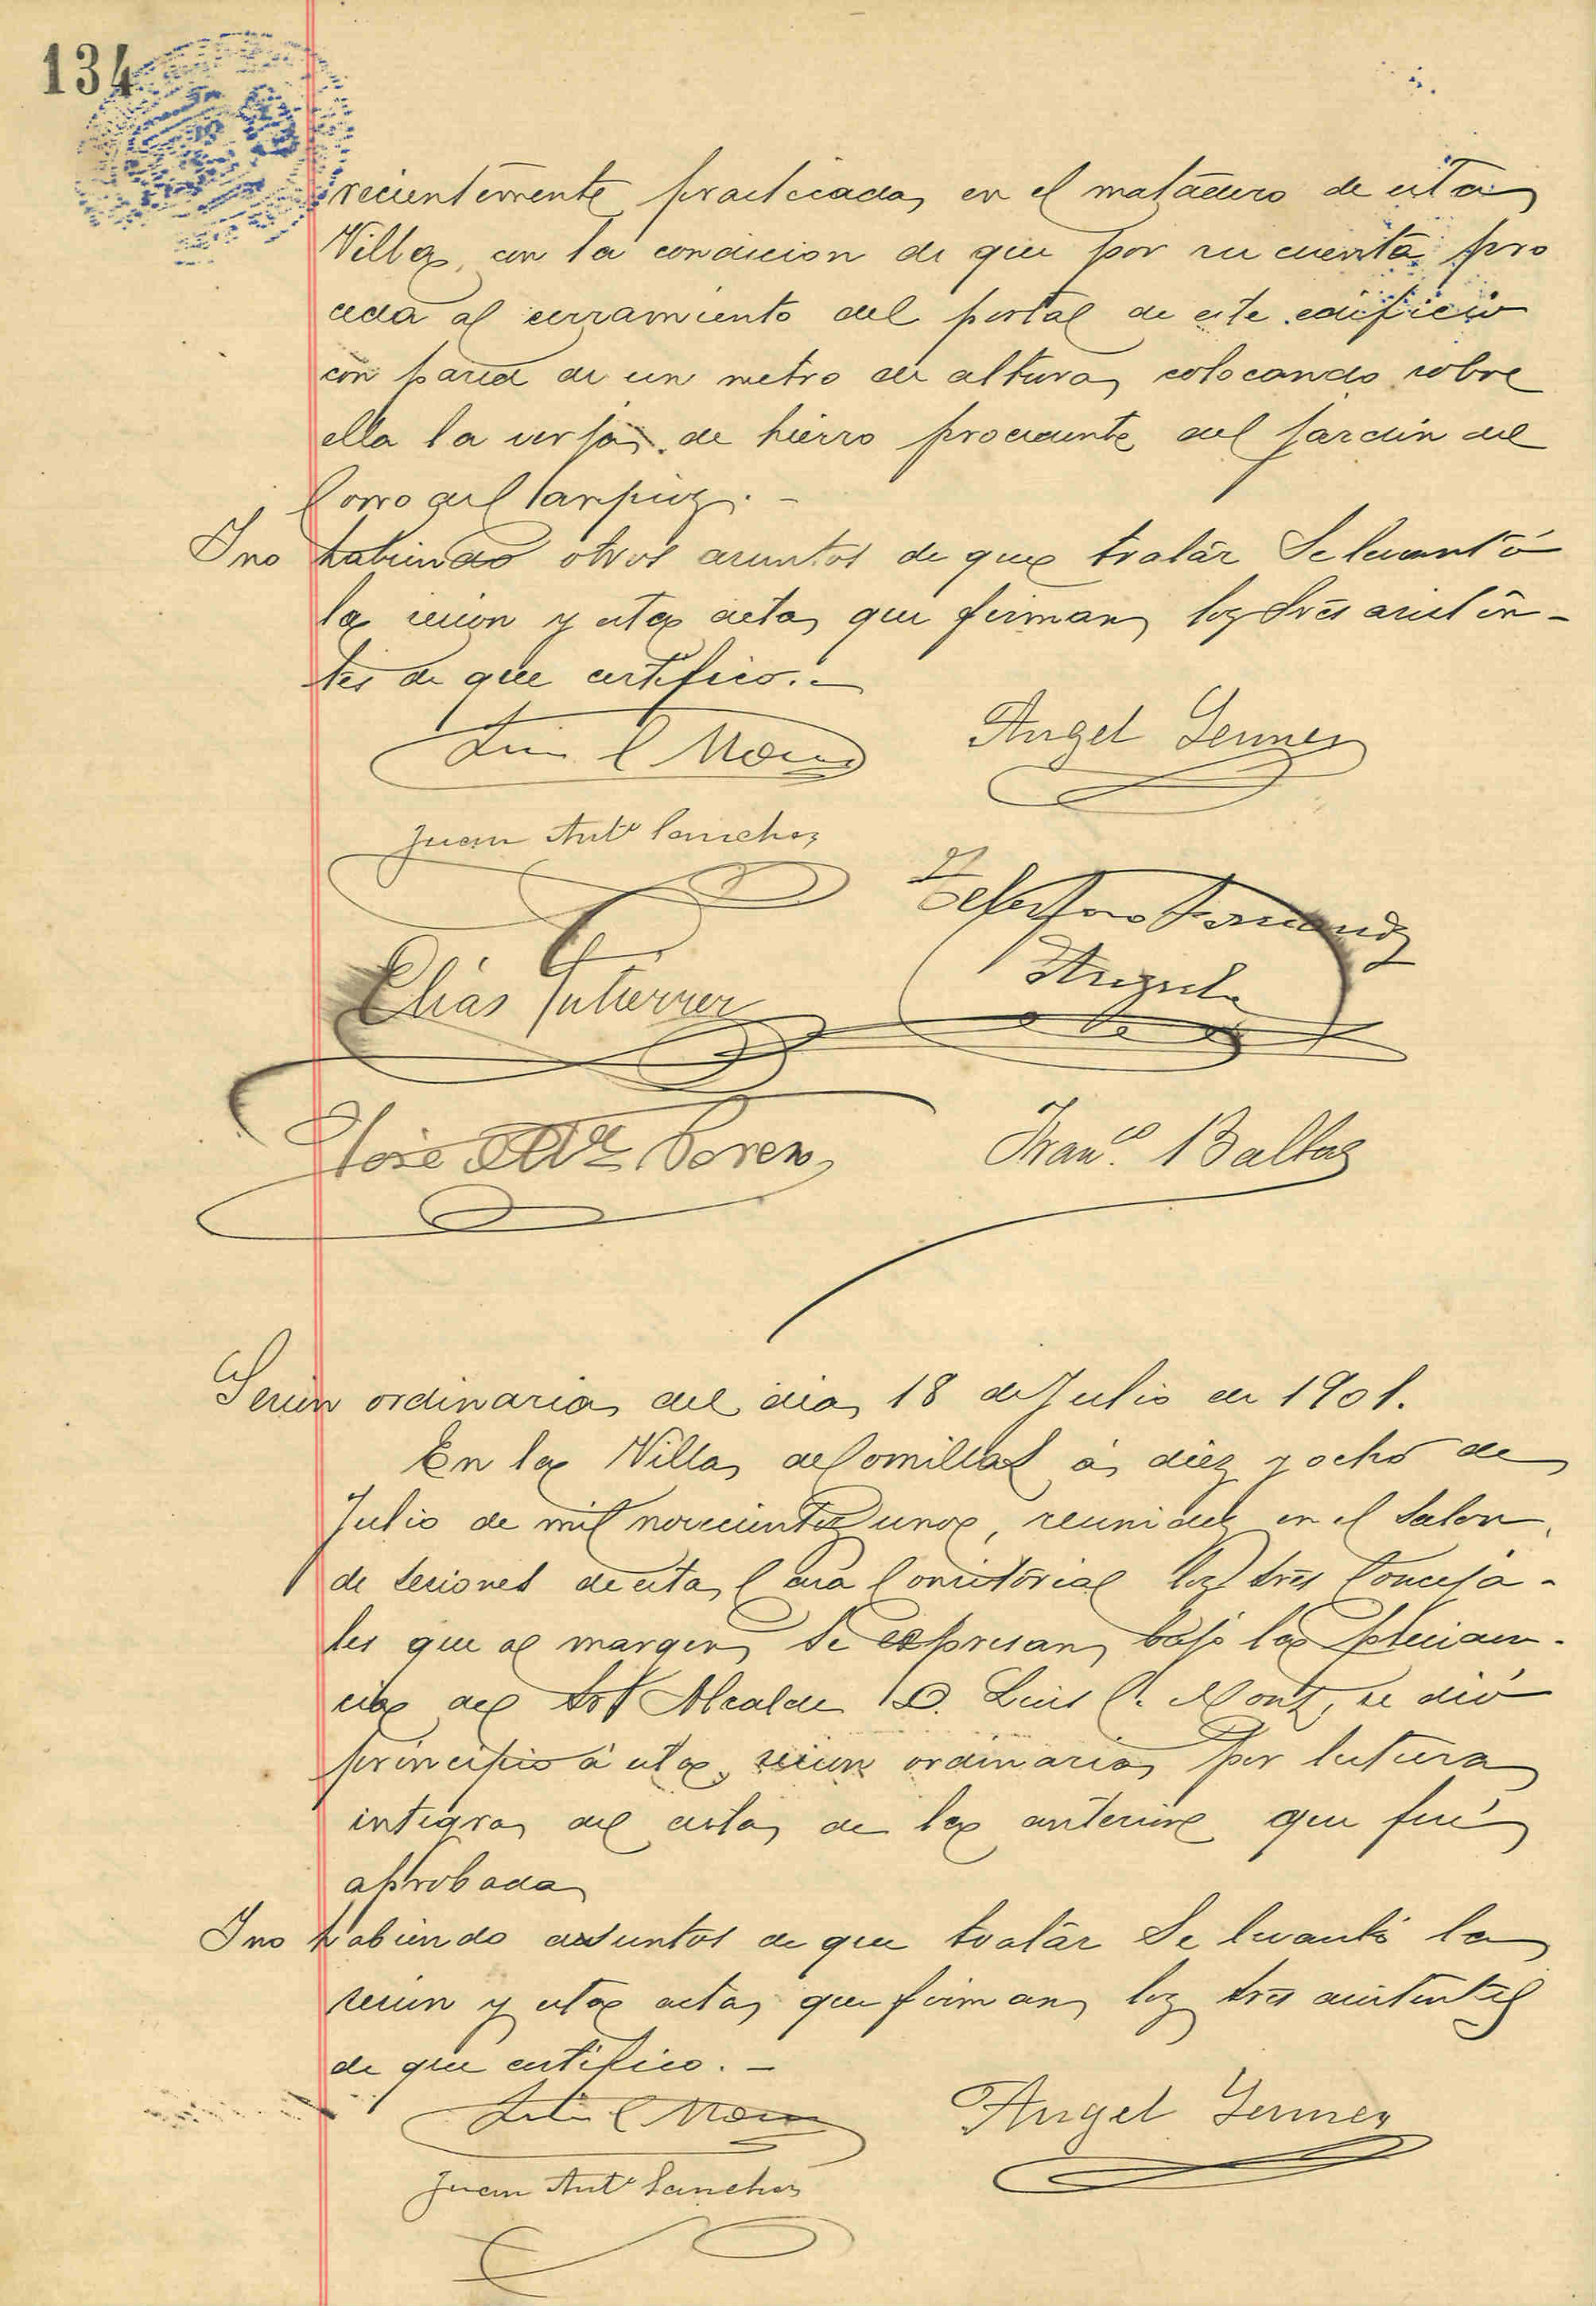 134
recientemente practicada en el matadero de esta
Villa, con la condicion de que por su cuenta pro
ceda al cerramiento del portal de este edificio
con pared de un metro de altura, colocando sobre
ella la verja de hierro procedente del jardin del
Corro del Campíos.
Y no habiendo otros asuntos de que tratár se levantó
la sesion y esta acta, que firman los Sres asistén-
tes de que certifico.-
Luis C Mon
Angel Sennen
Juan Antº Sanchez
Telesforo Fernandez
Elías Gutierrez
José Mª Loren
Franco. Balbas
Sesion ordinaria del dia 18 de Julio de 1901.
En la Villa de Comillas á diez y ocho de
Julio de mil novecientos uno, reunidos en el Salon
de sesiones de esta Casa Consistórial los Sres Conceja-
les que al margen se expresan, bajo la presiden-
cia del Sor Alcalde D. Luis C. Mont, se dió
principio á esta sesion ordinaria por lectura
integra del acta de la anterior que fué
aprobada
Y no habiendo asuntos de que tratár se levantó la
sesion y esta acta, que firman los Sres asistentes
de que certifico.-
Luis C Mon
Angel Sennen
Juan Antº Sanchez